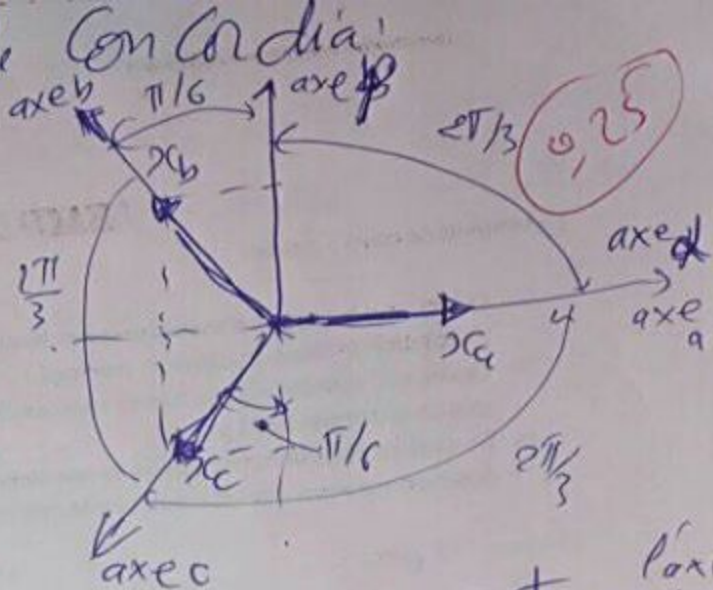 Concordia:
axe b π/6 axe β
2π/3 0,25
xb
axe α
2π/3
xa axe a
π/6
xc 2π/3
axe c